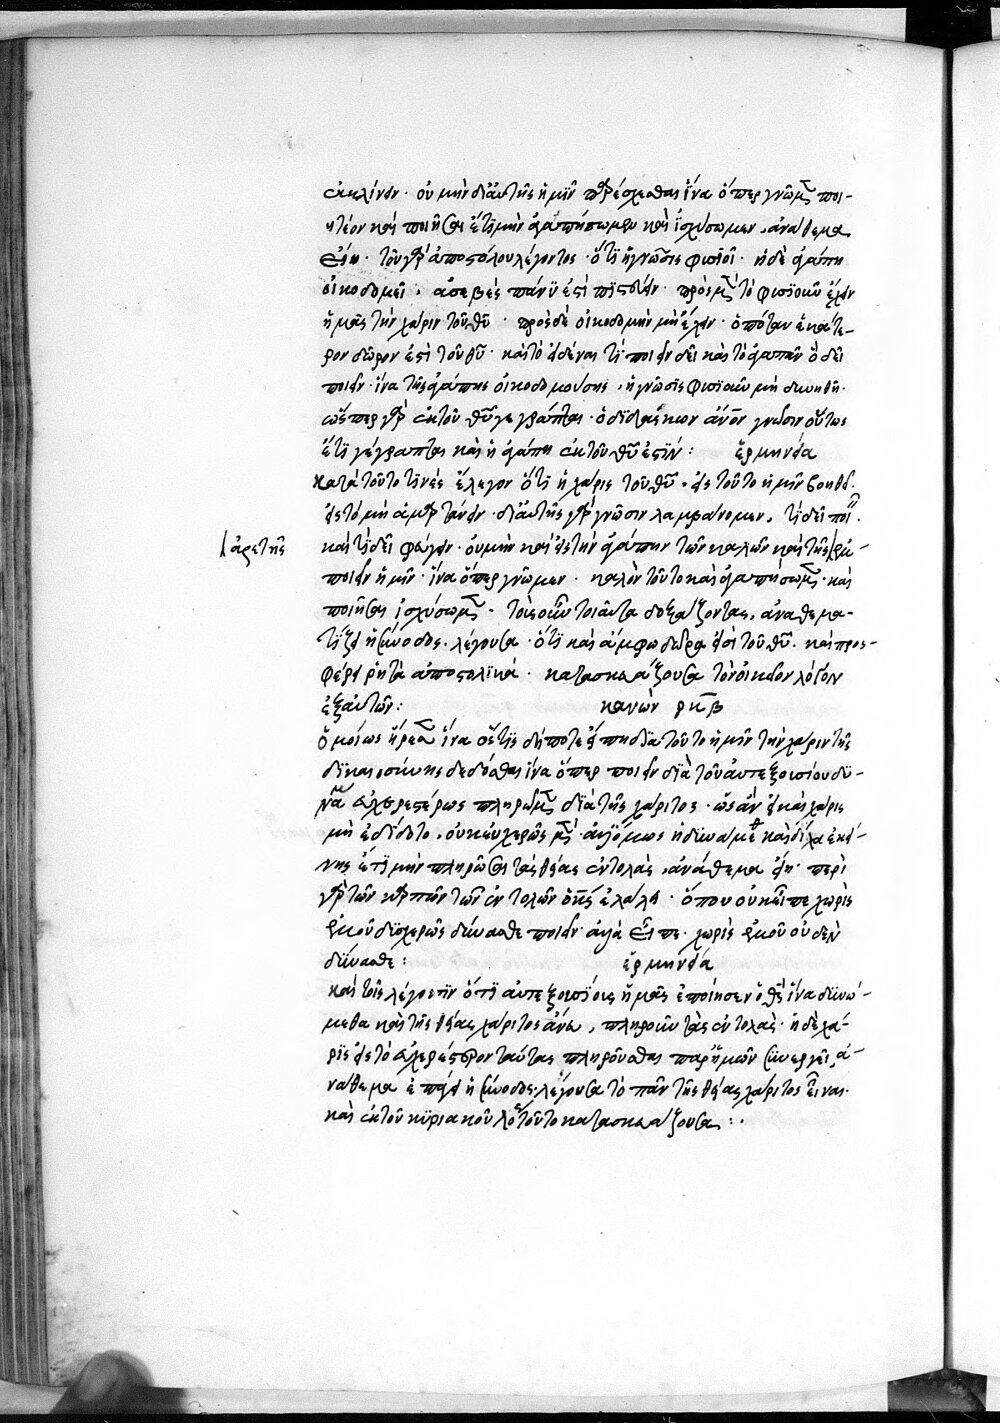 ἐκκλίνειν· οὐ μὴν δι' αὐτῆς ἡμῖν παρέσχεσθαι ἵνα ὅπερ γνῶμεν ποι-
ητέον καὶ ποιῆσαι ἔτι μὴν ἀγαπήσωμεν καὶ ἰσχύσωμεν, ἀνάθεμα
εἴη· τοῦ γὰρ ἀποστόλου λέγοντος· ὅτι ἡ γνῶσις φυσιοῖ· ἡ δὲ ἀγάπη
οἰκοδομεῖ, ἀσεβὲς πάνυ ἐστὶ πιστεύειν· πρὸς μὲν τὸ φυσιοῦν ἔχειν
ἡμᾶς τὴν χάριν τοῦ θῦ· πρὸς δὲ οἰκοδομὴν μὴ ἔχειν· ὁπόταν ἑκάτε-
ρον δῶρον ἐστὶ τοῦ θῦ· καὶ τὸ εἰδέναι τί ποιεῖν δεῖ καὶ τὸ ἀγαπᾶν ὃ δεῖ
ποιεῖν· ἵνα τῆς ἀγάπης οἰκοδομούσης, ἡ γνῶσις φυσιοῦν μὴ δυνηθῇ·
ὥσπερ γὰρ ἐκ τοῦ θῦ γέγραπται· ὁ διδάσκων ἄνον γνῶσιν οὕτως
ἔτι γέγραπται καὶ ἡ ἀγάπη ἐκ τοῦ θῦ ἐστίν: ἑρμηνεία
κατὰ τοῦτο τινὲς ἔλεγον ὅτι ἡ χάρις τοῦ θῦ, εἰς τοῦτο ἡμῖν βοηθεῖ·
εἰς τὸ μὴ ἁμαρτάνειν· δι' αὐτῆς γὰρ γνῶσιν λαμβάνομεν, τί δεῖ ποιεῖν
καὶ τί δεῖ φεύγειν· οὐ μὴν καὶ εἰς τὴν ἀγάπην τῶν καλῶν καὶ τῆς ἐμ-
ἀρετῆς
ποιεῖν ἡμῖν· ἵνα ὅπερ γνῶμεν· καλὸν τοῦτο καὶ ἀγαπήσωμεν· καὶ
ποιῆσαι ἰσχύσωμεν· τοὺς οὖν τοιαῦτα δοξάζοντας, ἀναθεμα-
τίζει ἡ σύνοδος, λέγουσα· ὅτι καὶ ἄμφω δῶρα εἰσὶ τοῦ θῦ· καὶ προσ-
φέρει ῥητὰ ἀποστολικά· κατασκευάζουσα τὸν οἰκεῖον λόγον
ἐξ αὐτῶν: κανὼν ρκβ
ὁμοίως ἤρεσεν ἵνα ὅστις δήποτε εἴπῃ διὰ τοῦτο ἡμῖν τὴν χάριν τῆς
δικαιοσύνης δεδόσθαι ἵνα ὅπερ ποιεῖν διὰ τοῦ αὐτεξουσίου δυ-
νάμεθα εὐχερεστέρως πληρῶμεν διὰ τῆς χάριτος· ὡς ἂν εἰ καὶ χάρις
μὴ ἐδίδοτο, οὐκ εὐχερῶς μὲν· ἀλλ' ὅμως ἠδυνάμεθα καὶ δίχα ἐκεί-
νης ἔτι μὴν πληρῶσαι τὰς θείας ἐντολὰς, ἀνάθεμα εἴη· περὶ
γὰρ τῶν καρπῶν τῶν ἐντολῶν ὁ κς ἐλάλει· ὅπου οὐκ εἶπε χωρὶς
ἐμοῦ δυσχερῶς δύνασθε ποιεῖν· ἀλλὰ εἶπε· χωρὶς ἐμοῦ οὐδὲν
δύνασθε: ἑρμηνεία
καὶ τοῖς λέγουσιν ὅτι αὐτεξουσίους ἡμᾶς ἐποίησεν ὁ θς ἵνα δυνώ-
μεθα καὶ τῆς θείας χάριτος ἄνευ, πληροῦν τὰς ἐντολὰς· ἡ δὲ χά-
ρις εἰς τὸ εὐχερέστερον ταύτας πληροῦσθαι παρ' ἡμῶν συνεργεῖ, ἀ-
νάθεμα ἐπάγει ἡ σύνοδος, λέγουσα τὸ πᾶν τῆς θείας χάριτος εἶναι·
καὶ ἐκ τοῦ κυριακοῦ λόγου τοῦτο κατασκευάζουσα:·